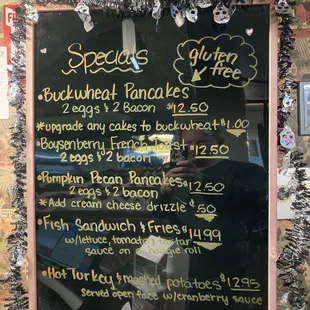 Specials
gluten
free
• Buckwheat Pancakes
2 eggs & 2 bacon $12.50
*upgrade any cakes to buckwheat $1.00
• Boysenberry French Toast
2 eggs & 2 bacon $12.50
• Pumpkin Pecan Pancakes
2 eggs & 2 bacon $12.50
* Add cream cheese drizzle $.50
• Fish Sandwich & Fries $14.99
w/lettuce, tomato, tartar
sauce on a roll
• Hot Turkey & mashed potatoes $12.95
served open face w/cranberry sauce